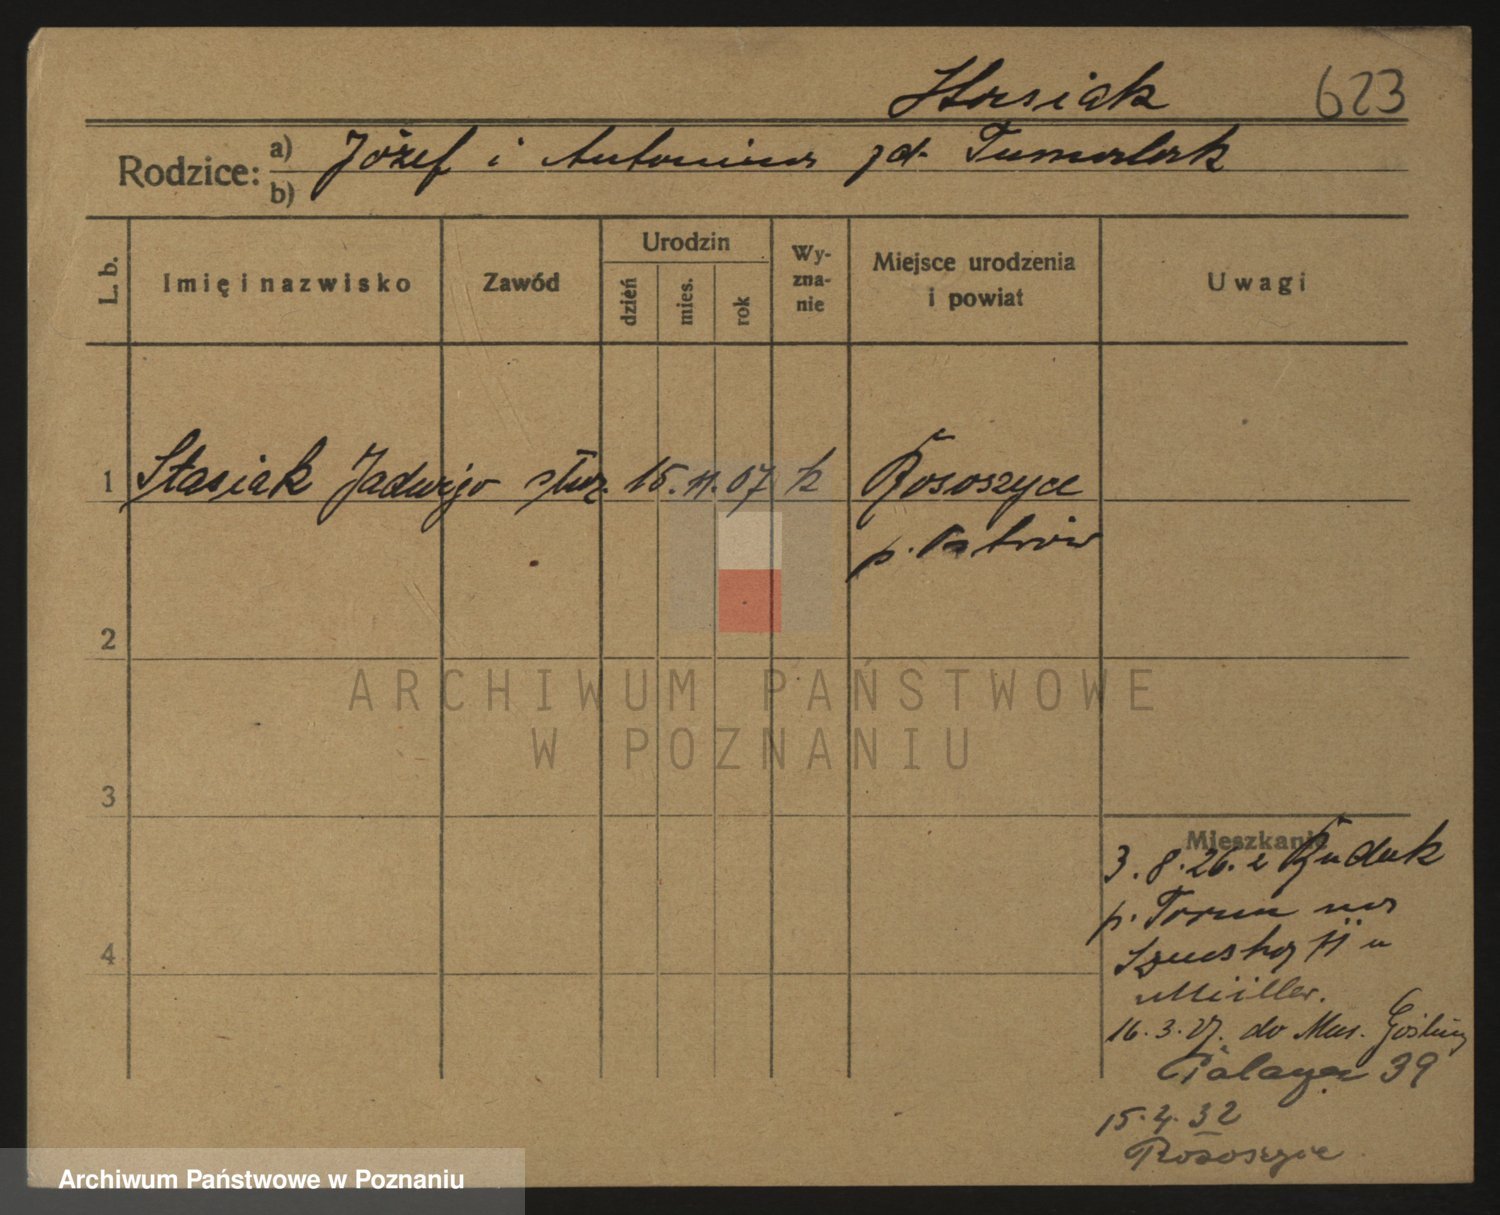 Stasiak 623
Rodzice: a) Józef i Antonina zd.
b)
L. b. Imię i nazwisko Zawód Urodzin dzień mies. rok Wy-zna-nie Miejsce urodzenia i powiat Uwagi
1 Stasiak Jadwiga służ. 15. 11. 07 k Rososzyce
p. Ostrów
2
ARCHIWUM PAŃSTWOWE
W POZNANIU
3
Mieszkanie
3. 8. 26. z Rudak
p. Toruń na
4
11 u
Müller.
16. 3. 27. do Mur. Goślina
39
15. 4. 32
Rososzyce
Archiwum Państwowe w Poznaniu